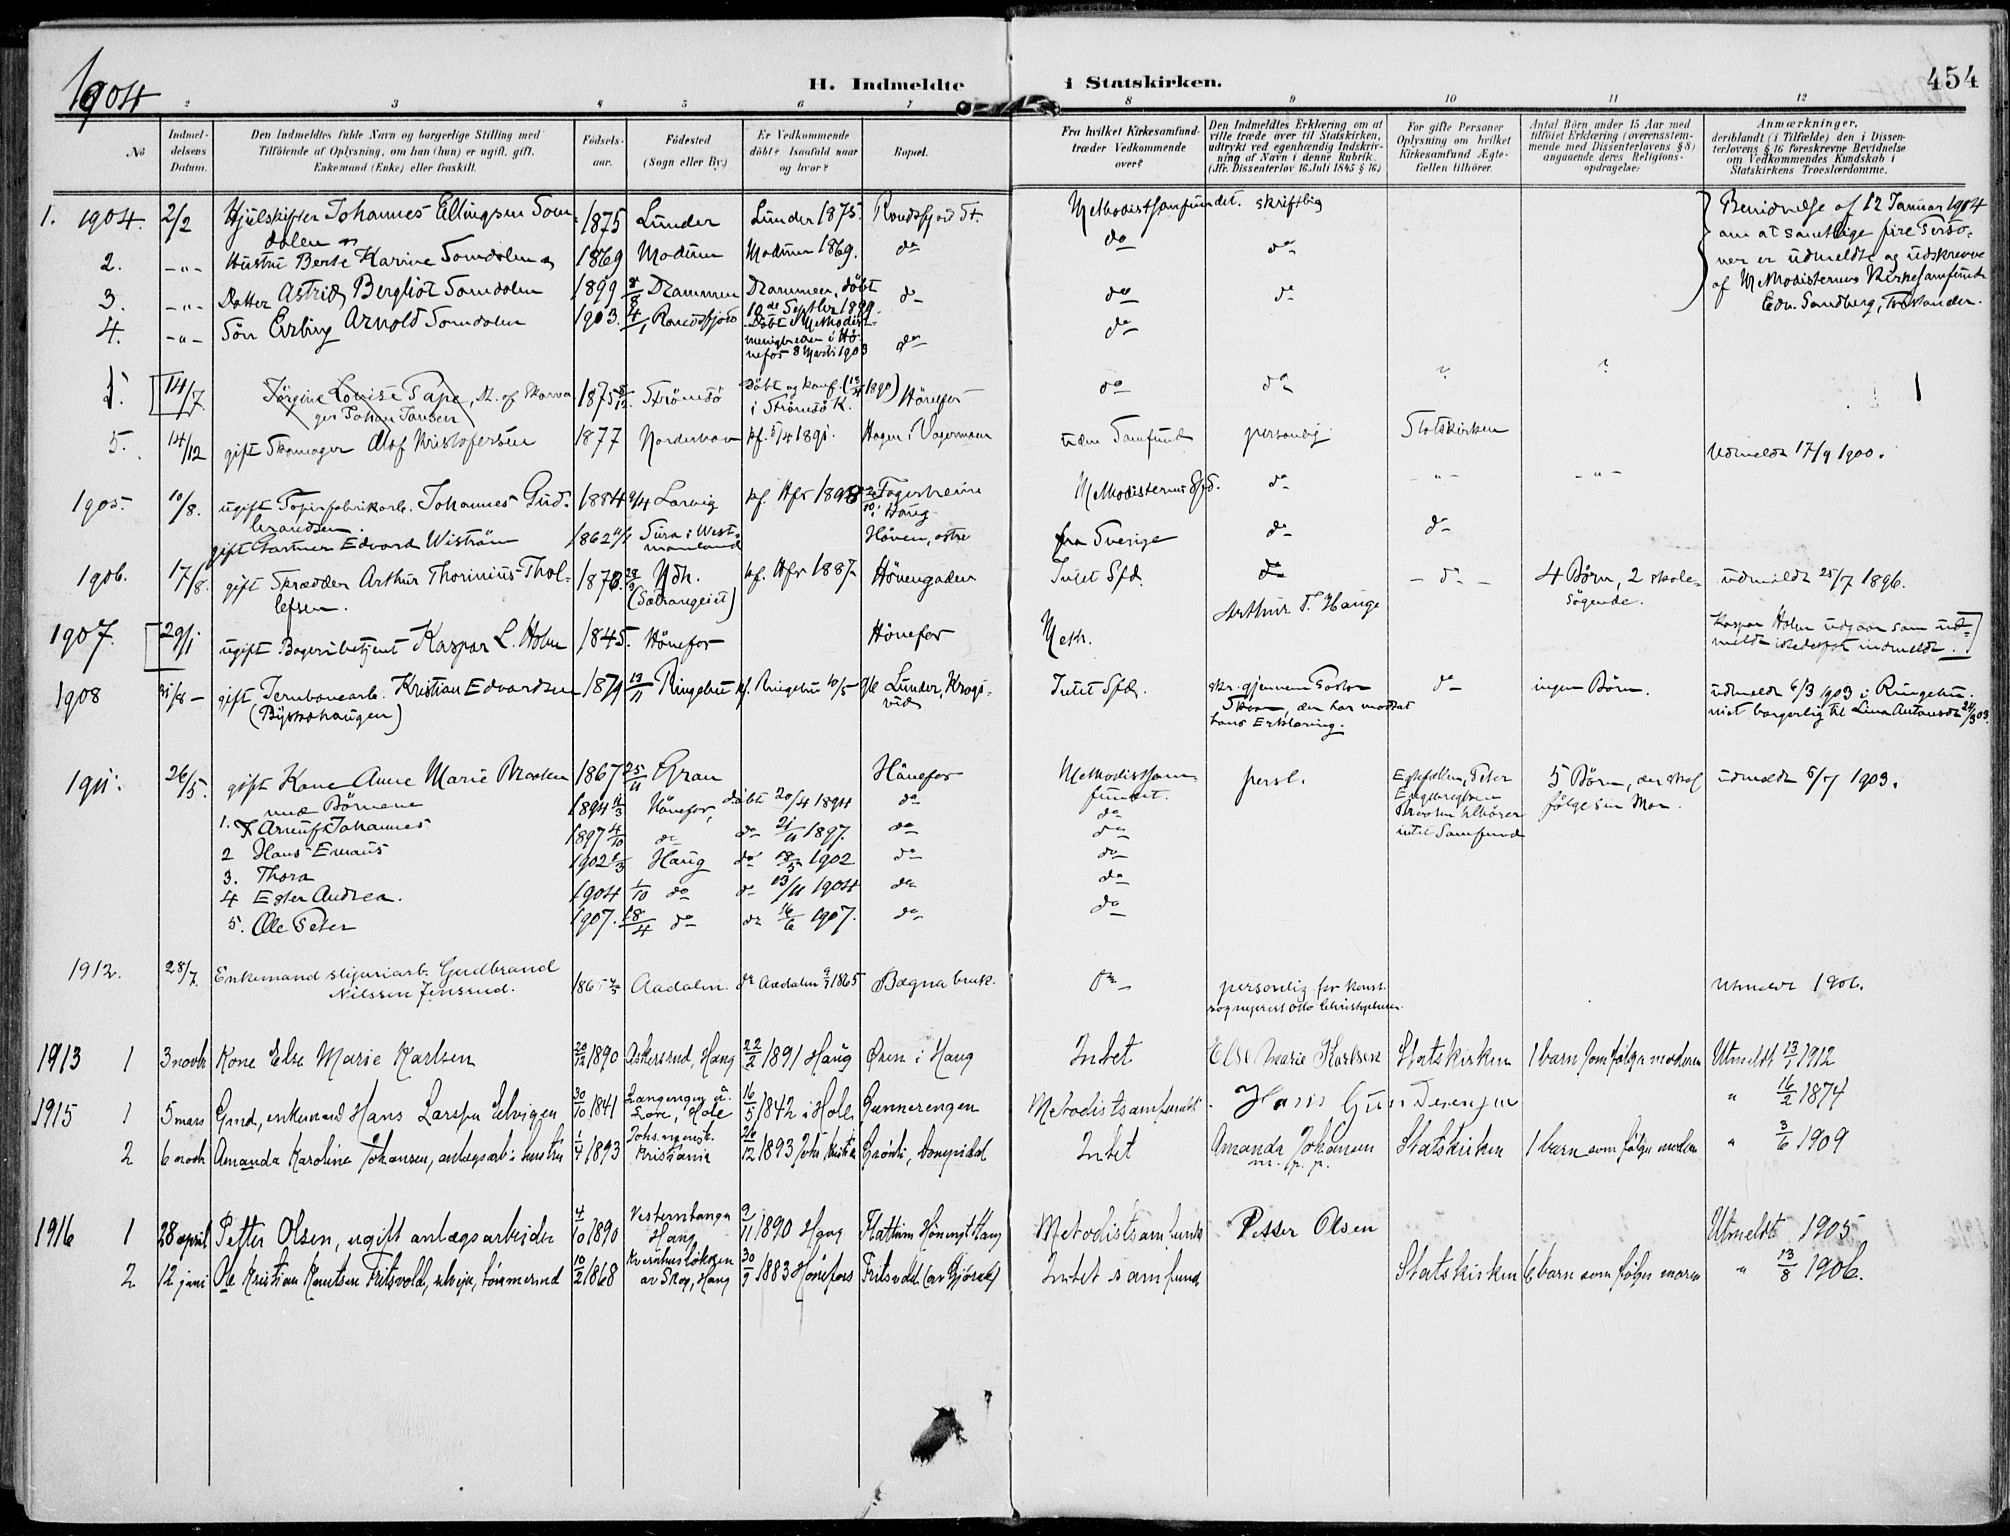 1904
H. Indmeldte i Statskirken.
454
2 3 4 5 6 7 8 9 10 11 12
No
Indmeldelsens Datum.
Den Indmeldtes fulde Navn og borgerlige Stilling med Tilføiende af Oplysning, om han (hun) er ugift, gift, Enkemand (Enke) eller fraskilt.
Fødselsaar.
Fødested (Sogn eller By.)
Er Vedkommende døbt? Isaafald naar og hvor?
Bopæl.
Fra hvilket Kirkesamfund træder Vedkommende over?
Den Indmeldtes Erklæring om at ville træde over til Statskirken, udtrykt ved egenhændig Indskrivning af Navn i denne Rubrik. (Jfr. Dissenterlov 16. Juli 1845 § 16.)
For gifte Personer Oplysning om hvilket Kirkesamfund Ægtefællen tilhører.
Antal Børn under 15 Aar med tilføiet Erklæring (overensstemmende med Dissenterlovens § 8) angaaende deres Religionsopdragelse:
Anmærkninger, deriblandt (i Tilfælde) den i Dissenterlovens § 16 foreskrevne Bevidnelse om Vedkommendes Kundskab i Statskirkens Troeslærdomme.
1. 1904. 2/2 Hjulskifter Johannes Ellingsen Somdalen 1875 Lunder Lunder 1875. Randsfjord St. Methodistsamfundet. skriftlig Bevidnelse af 12 Januar 1904
om at samtlige fire Personer er udmeldte og udskrevne
af Methodisternes Kirkesamfund
Edv. Sandberg, Forstander.
2. -"- Hustru Berte Karine Somdalen 1869 Modum Modum 1869. do do do
3. -"- Datter Astrid Bergliot Somdalen 1899 8/8 Drammen Drammen, döbt 10de Septbr 1899 do do do
4. -"- Sön Erling Arnold Somdalen 1903. 4/1 Randsfjord Döbt i Methodistmenigheden i Hönefos 8 Marts 1903 do do
5. 14/7. Jörgine Lovise Tape, 1875 Strömsö Döbt og konf. i Strömsö K. Hönefos do do
ger Johan Jansen
5. 14/12 gift Skomager Olaf Kristofersen 1877 Norderhov kf. 5/4 1891. Hagen i Vagermoen uden Samfund personlig Statskirken Udmeldt 17/9 1900.
1905. 10/8. ugift Papirfabrikarb. Johannes Gudbrandsen. 1884 9/4 Larvig kf. Hfs 1898 Fagerheim i Haug Methodisternes Sfd. do -"- -"-
gift Gartner Edvard Wiström 1862 Sura i Westmanland Höven, östre fra Sverige do do
1906. 17/8. gift Skrædder Arthur Thorinius Thollefsen. 1873. Ndh. kf. Hfs 1887 Hövengaden Intet Sfd. do - do - 4 Børn, 2 skolesøgende. udmeldt 25/7 1896.
Arthur T. Hauge
1907. 29/1 ugift Bageribetjent Kaspar L. Holm 1845. Hönefos Hönefos Meth. Kaspar Holm udgaar som udmeldt istedetfor indmeldt.
1908 31/8 - gift Jernbanearb. Kristian Edvardsen 1879 13/11 Ringebu kf. Ringebu 10/5 96 Lunder, Krogsvid Intet Sfd. skr. gjennem Pastor do ingen Børn. udmeldt 6/3 1903 i Ringebu.
hans Erklæring. viet borgerlig til Lina Antonsdt 24/3 03.
1911. 26/5. gift Kone Anne Marie Braaten 1867 25/11 Gran Hönefos Methodistsamfundet. persl. Egtefællen, Peter 5 Børn, der skal følge sin Mor. udmeldt 5/7 1903.
med Børnene
1. Arnulf Johannes 1894 Hönefos, döbt 20/4 1894 do do
tilhører intet Samfund
2 Hans Emaus 1897 4/10 do do 21/11 1897. do do
3. Thora 1902 Haug do 18/5 1902 do do
4 Ester Andrea. 1904 1/10 do do 13/11 1904 do do
5. Ole Peter 1907. 18/4 do do 16/6 1907. do do
1912. 28/7. Enkemand sliperiarb. Gudbrand Nilssen Jensrud. 1865 Aadalen. do Aadalen 9/7 1865 Bægna bruk. do personlig for konst. sogneprest Otto Christophersen Utmeldt 1906.
1913 1 3 novbr Kone Else Marie Karlsen 20/12 1890 Askersrud, Haug 22/2 1891 Haug Øren i Haug Intet Else Marie Karlsen Statskirken 1 barn som følger moderen Utmeldt 13/1 1912
1915 1 5 mars Gmd, enkemand Hans Larssen Elvigen 30/10 1841 Hole 16/5 1842 i Hole Gunnerengen Metodistsamfundet. Hans Gunderengen " 16/2 1874
2 6 novbr Amanda Karoline Johansen, anlægsarb.s hustru 1/4 1893 Johs. menh. Kristiania 26/12 1893 Joh. Kristia Grönli, Intet Amanda Johansen m. p. p. Statskirken 1 barn som følger moderen " 3/6 1909
1916 1 28 april Petter Olsen, ugift anlægsarbeider 4/10 1890 Haug 9/11 1890 Haug Flattum Hönengt Haug Metodistsamfundet Petter Olsen Utmeldt 1905
2 12 juni Ole Kristian Knutsen Fritsvold, tømmermd 10/2 1868 Kvernhusløkken av Skog, Haug 30/9 1883 Hönefoss Fritsvold (av Gjörud) Intet samfund Statskirken 6 barn som følger moren " 13/8 1906.